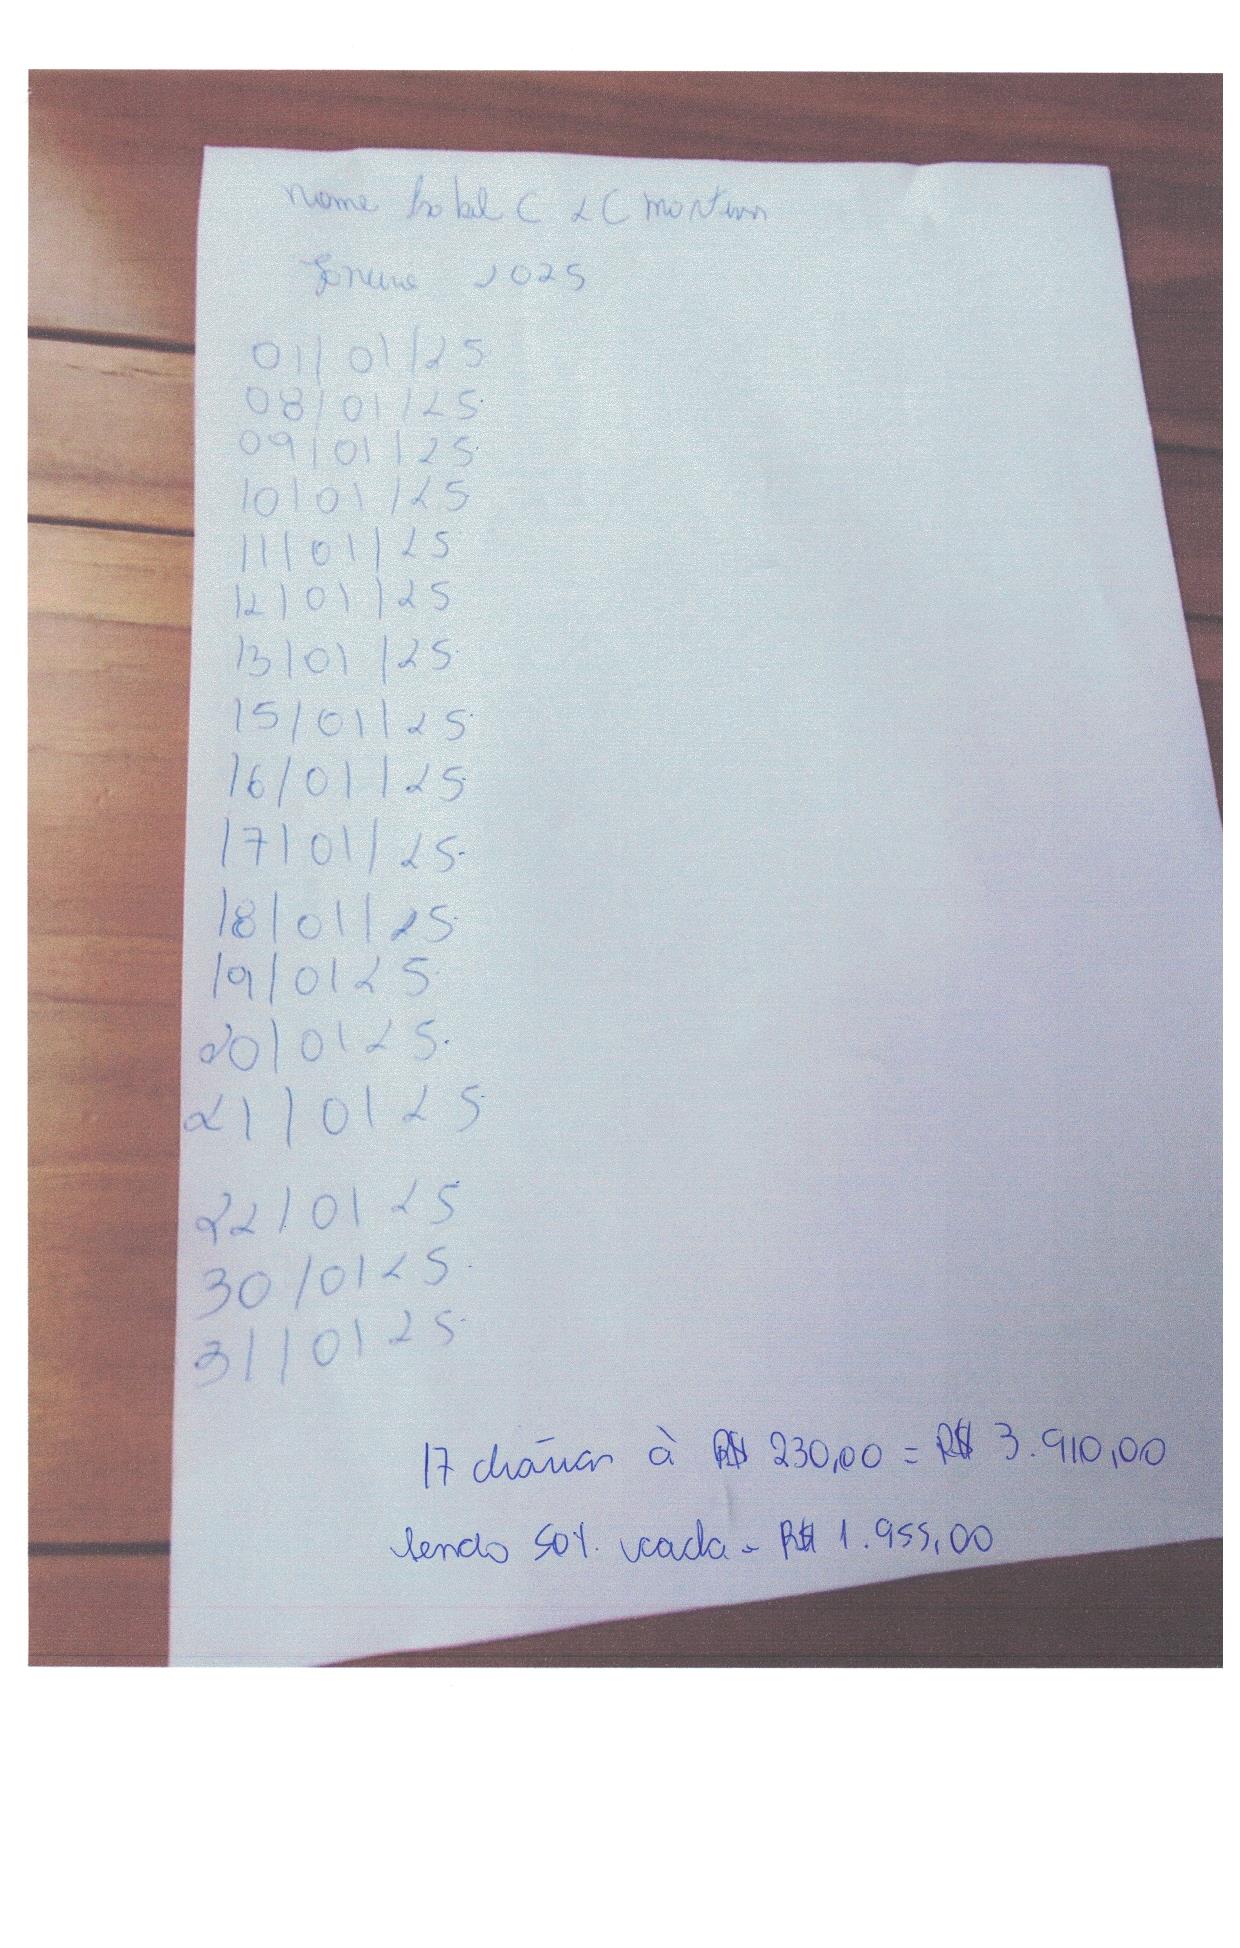 nome Isabel C L C Martins
Janeiro 2025
01/01/25
08/01/25
09/01/25
10/01/25
11/01/25
12/01/25
13/01/25
15/01/25
16/01/25
17/01/25
18/01/25
19/0125
20/0125
21/0125
22/0125
30/0125
31/0125
17 diárias à R$ 230,00 = R$ 3.910,00
sendo 50% cada = R$ 1.955,00